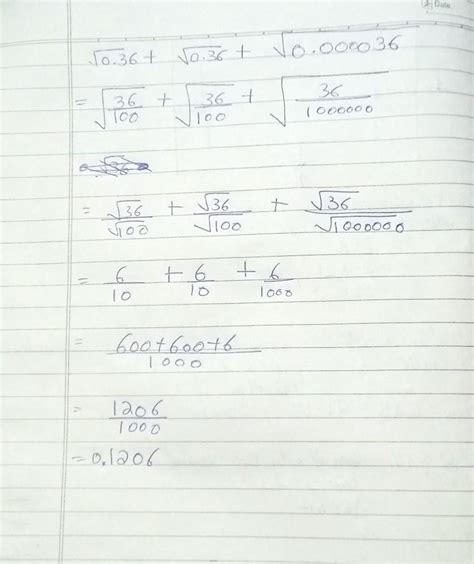 Date
√0.36 + √0.36 + √0.000036
= √36/100 + √36/100 + √36/1000000
= √36/√100 + √36/√100 + √36/√1000000
= 6/10 + 6/10 + 6/1000
= 600+600+6/1000
= 1206/1000
= 0.1206